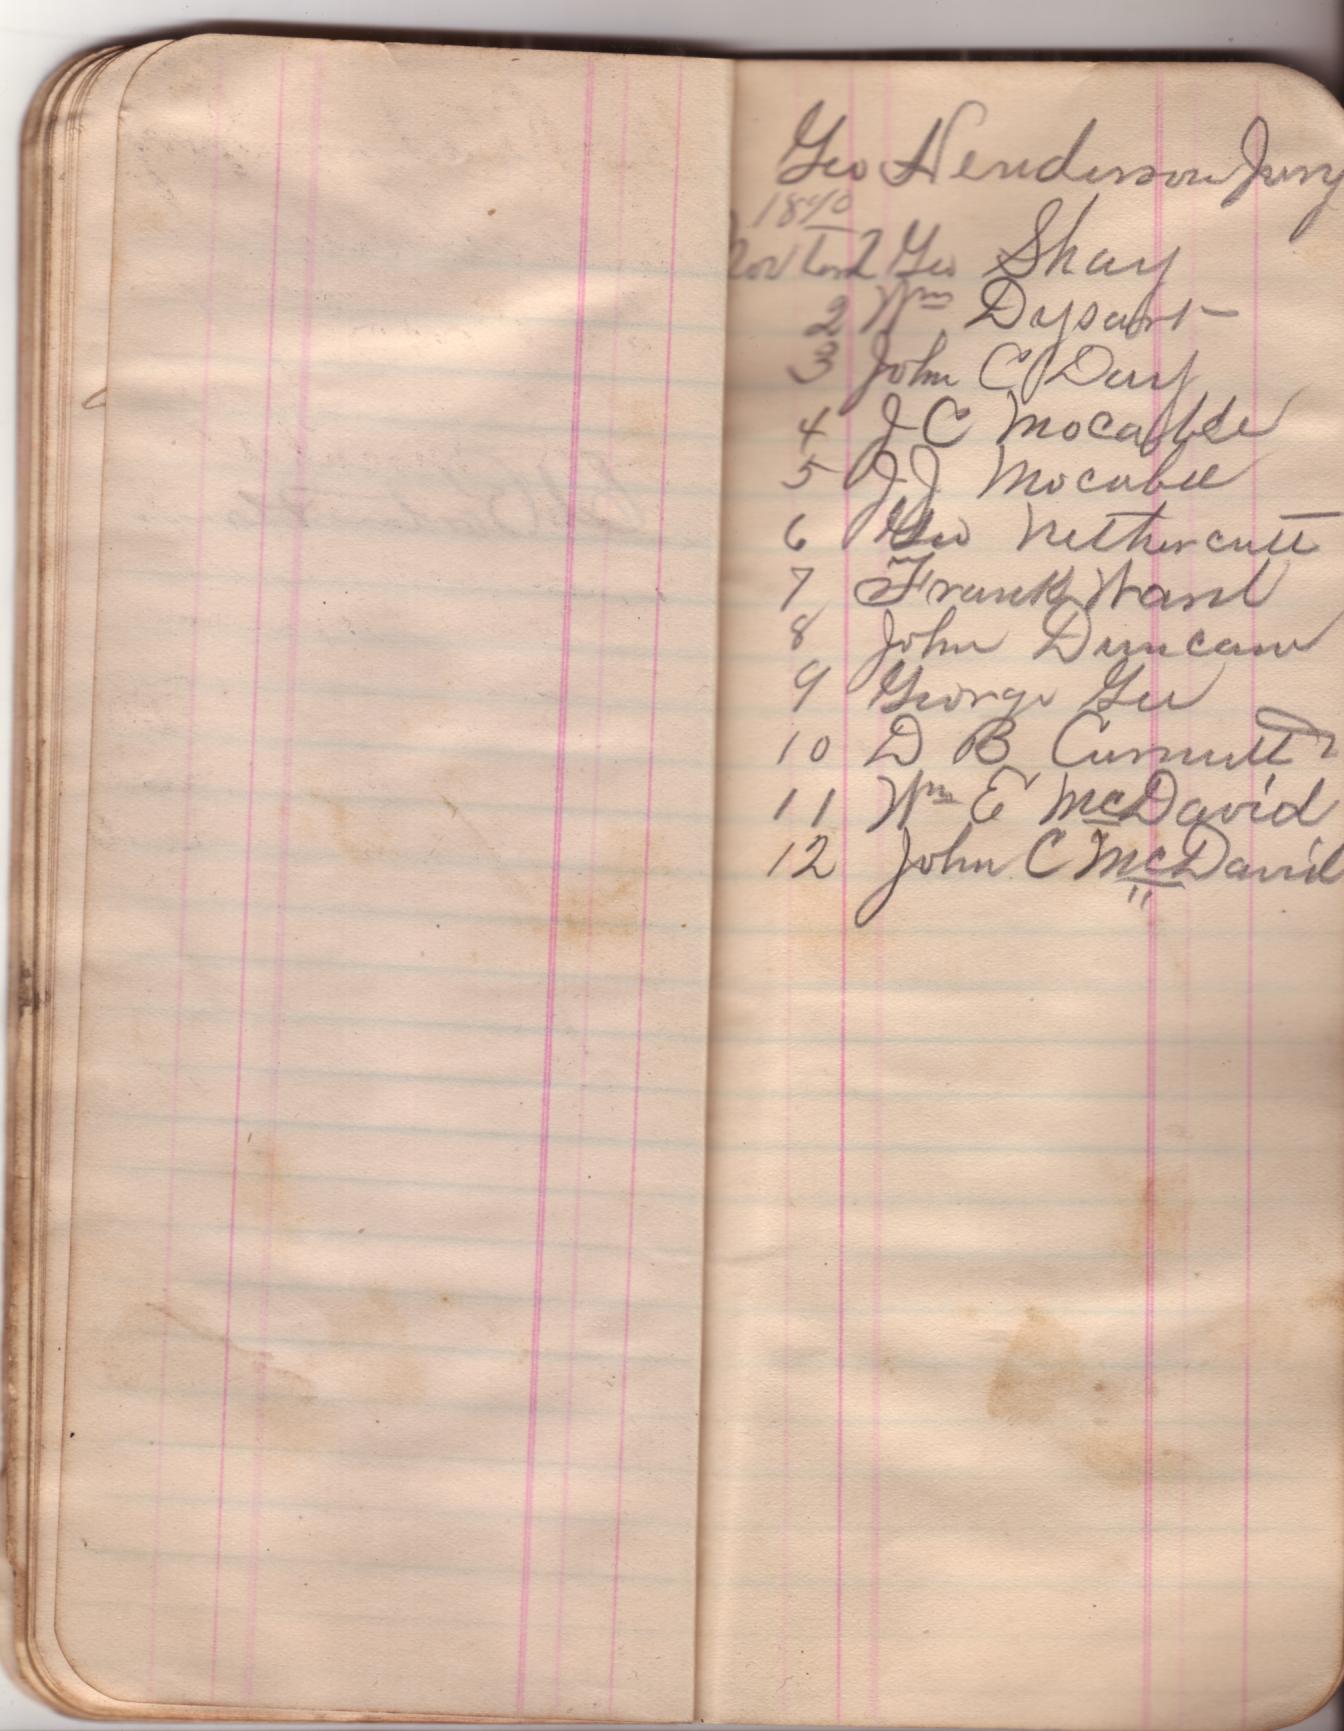 Geo Henderson Jury
1890
Nov Geo Shay
2 Wm Dysart
3 John C Day
4 J C Mocabee
5 J J Mocabee
6 Geo Nethercutt
7 Frank Ward
8 John Duncan
9 George Gee
10 D B Curnutt
11 Wm E McDavid
12 John C McDavid